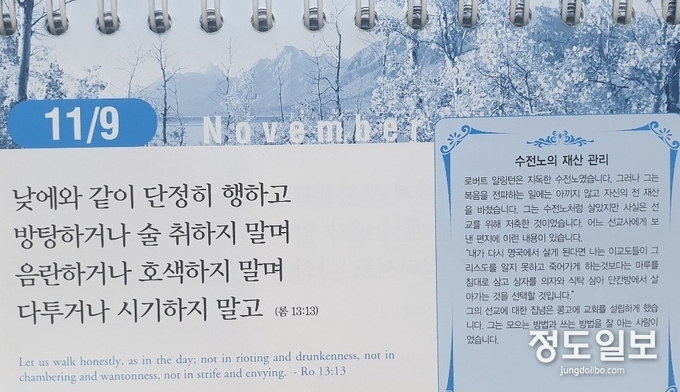 11/9
November
낮에와 같이 단정히 행하고
방탕하거나 술 취하지 말며
음란하거나 호색하지 말며
다투거나 시기하지 말고 (롬 13:13)
Let us walk honestly, as in the day; not in rioting and drunkenness, not in
chambering and wantonness, not in strife and envying. - Ro 13:13
수전노의 재산 관리
로버트 알링턴은 지독한 수전노였습니다. 그러나 그는
복음을 전파하는 일에는 아끼지 않고 자신의 전 재산
을 바쳤습니다. 그는 수전노처럼 살았지만 사실은 선
교를 위해 저축한 것이었습니다. 어느 선교사에게 보
낸 편지에 이런 내용이 있습니다.
"내가 다시 영국에서 살게 된다면 나는 이교도들이 그
리스도를 알지 못하고 죽어가게 하는것보다는 마루를
침대로 삼고 상자를 의자와 식탁 삼아 단칸방에서 살
아가는 것을 선택할 것입니다."
그의 선교에 대한 집념은 콩고에 교회를 설립하게 했습
니다. 그는 모으는 방법과 쓰는 방법을 잘 아는 사람이
었습니다.
정도일보
jungdoilbo.com